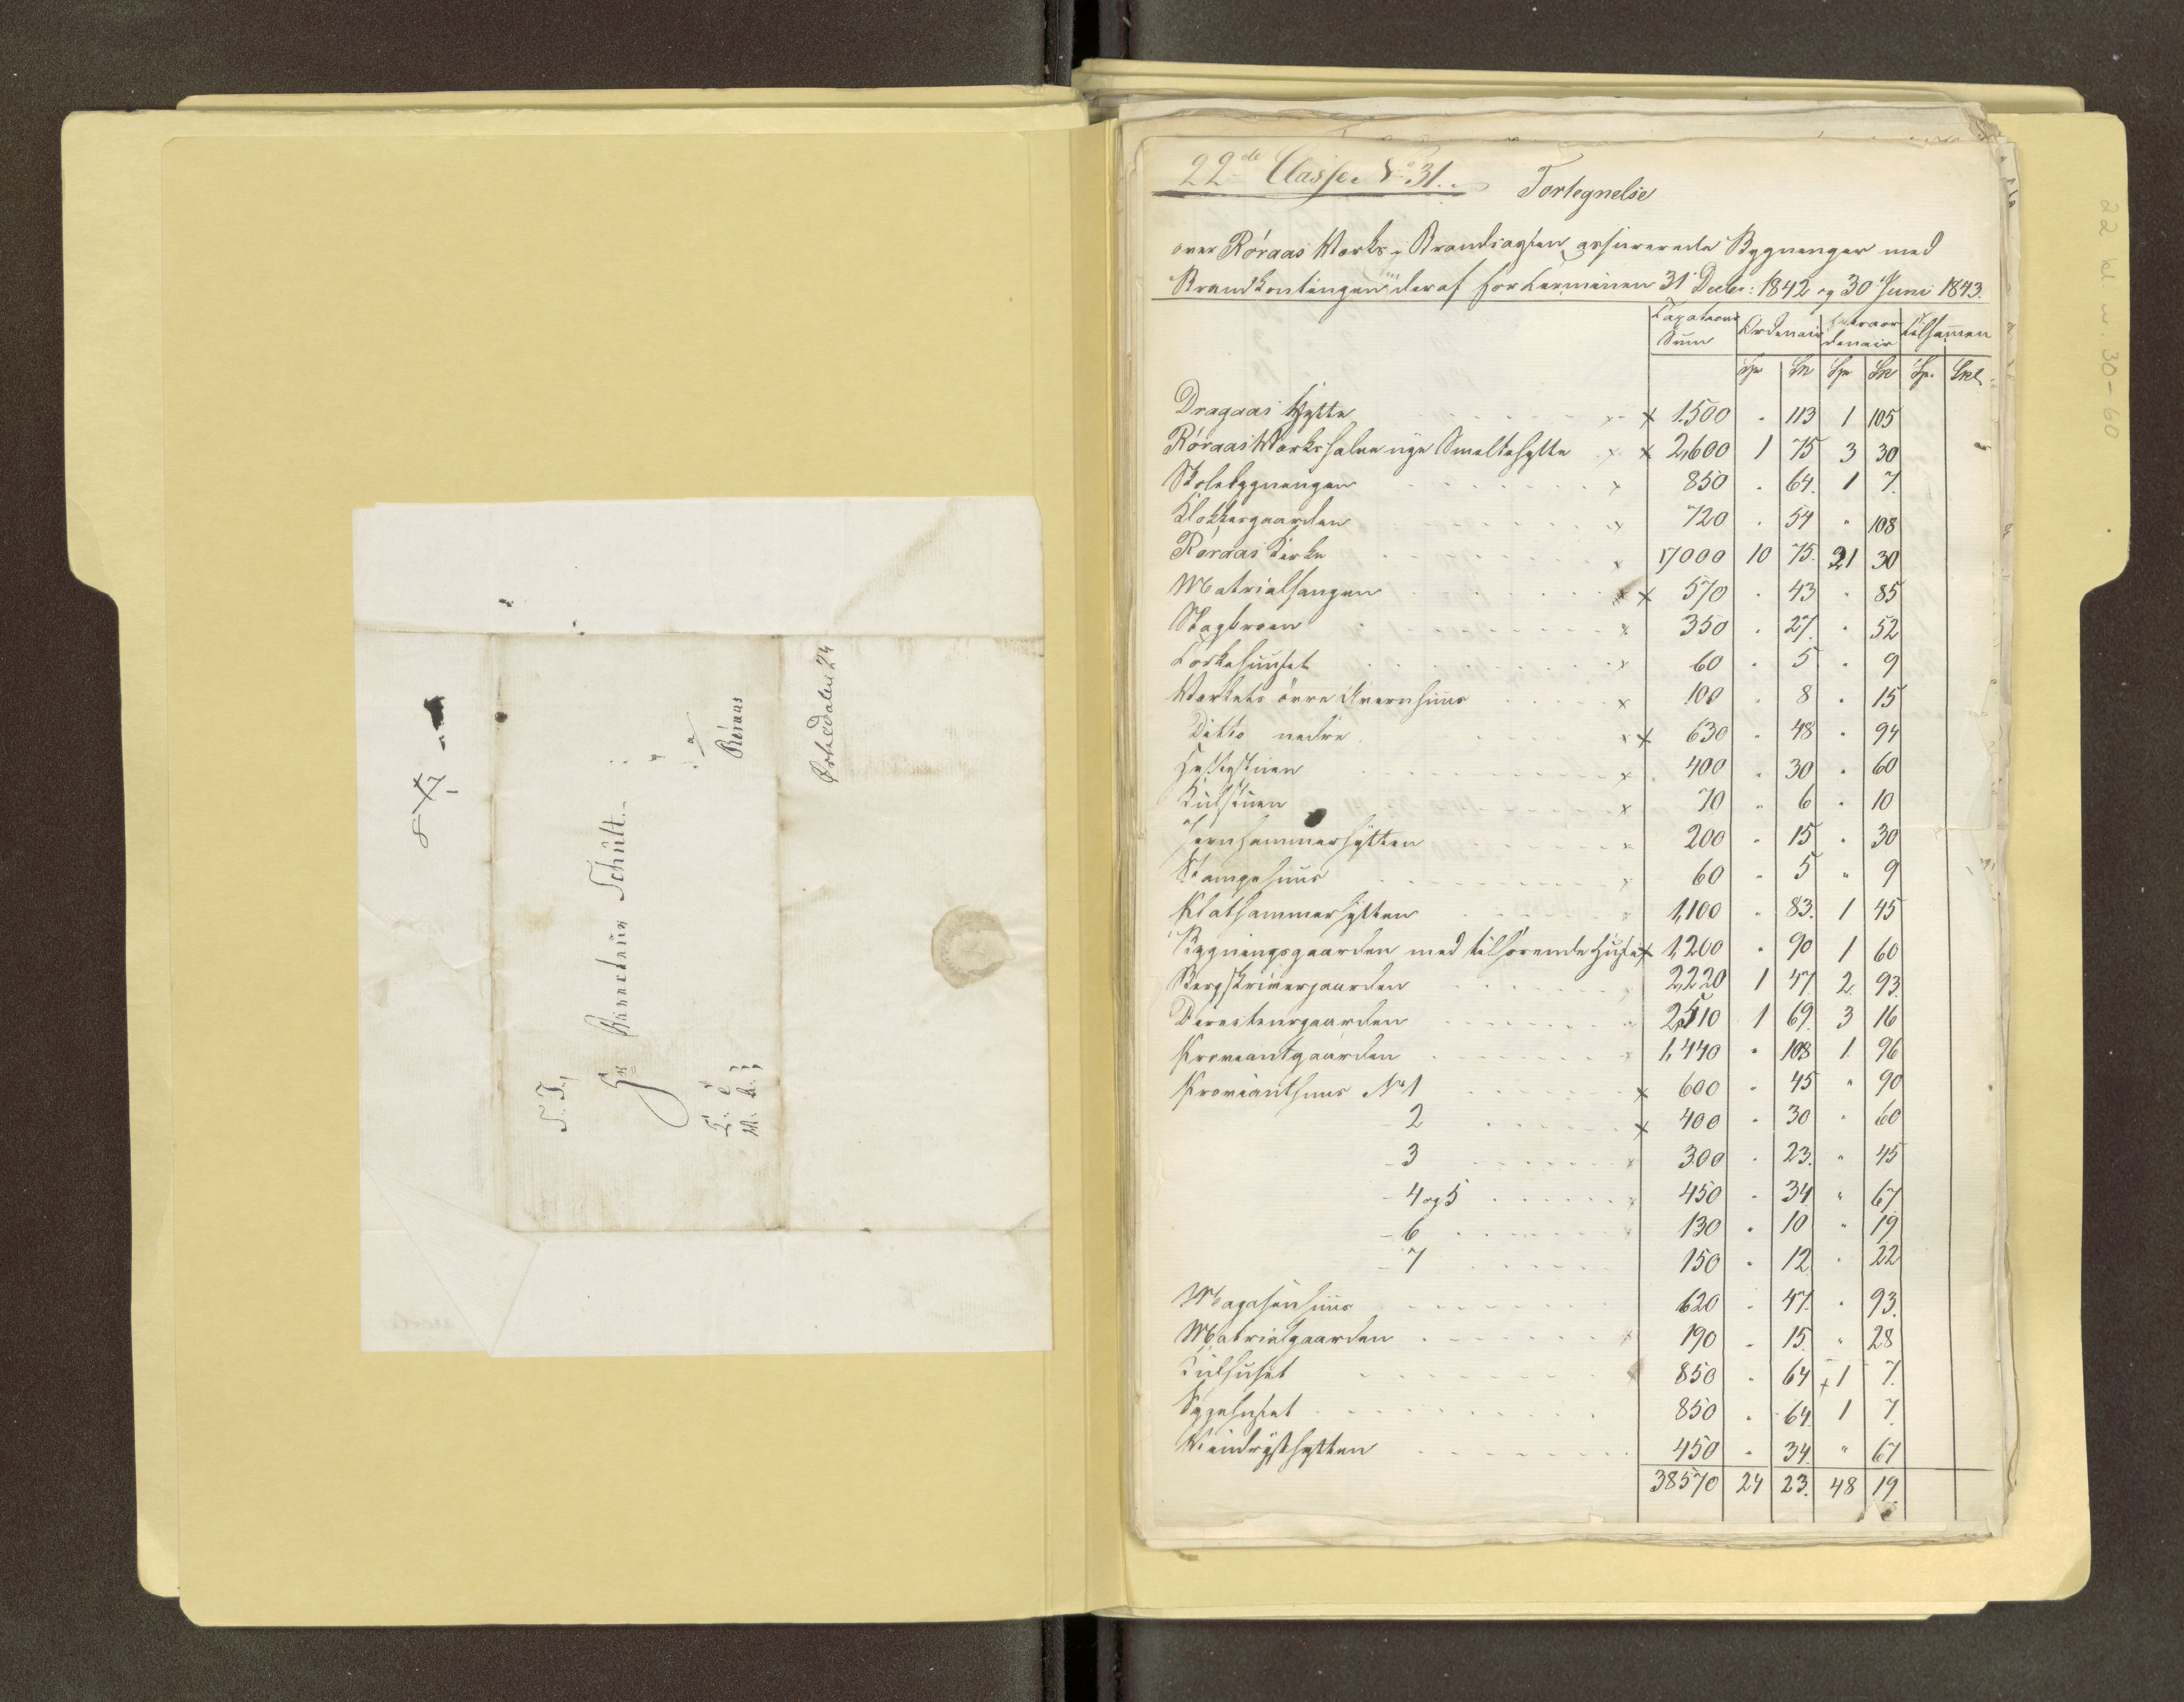 S. T.,
Hr Kunectus Schult
Røraas
Ørkedalen 24
22de Classe No 31.
Fortegnelse
over Røraas Værks i Brandcassen assurerede Bygninger med
Brandkontingent deraf for Terminen 31 Decbr: 1842 og 30 Juni 1843.
Taxations Sum | Ordinair | Extraordinair | tilsammen
Spd | Sk | Spd | Sk | Sp. | Skl.
Dragaas Hytte x 1500 " 113 1 105
Røraas Værks halve nye Smeltehytte x 2,600 1 75 3 30
Skolebygningen x 850 " 64 1 7
Klokkergaarden x 720 " 54 " 108
Røraas Kirke x 17000 10 75 21 30
Matrialhangen x 570 " 43 " 85
Vagtboen x 350 " 27 " 52
Tørkehuuset x 60 " 5 " 9
Værkets øvre Qvernhuus x 100 " 8 " 15
Ditto nedre x 630 " 48 " 94
x 400 " 30 " 60
x 70 " 6 " 10
Jernhammerhytten x 200 " 15 " 30
Stampehuus x 60 " 5 " 9
Plathammerhytten 1,100 " 83 1 45
Bygningsgaarden med tilhørende Huse x 1,200 " 90 1 60
Bergskrivergaarden 2,220 1 47 2 93
Direkteurgaarden 2,510 1 69 3 16
Proviantgaarden 1,440 " 108 1 96
Provianthuus No 1 x 600 " 45 " 90
- 2 x 400 " 30 " 60
- 3 300 " 23 " 45
- 4 og 5 450 " 34 " 67
- 6 130 " 10 " 19
- 7 150 " 12 " 22
Magasinhuus 620 " 47 " 93
Matrialgaarden 190 " 15 " 28
Kulhuset 850 " 64 1 7
Sygehuset 850 " 64 1 7
450 " 34 " 67
38570 24 23 48 19
22 kl. nr. 30-60